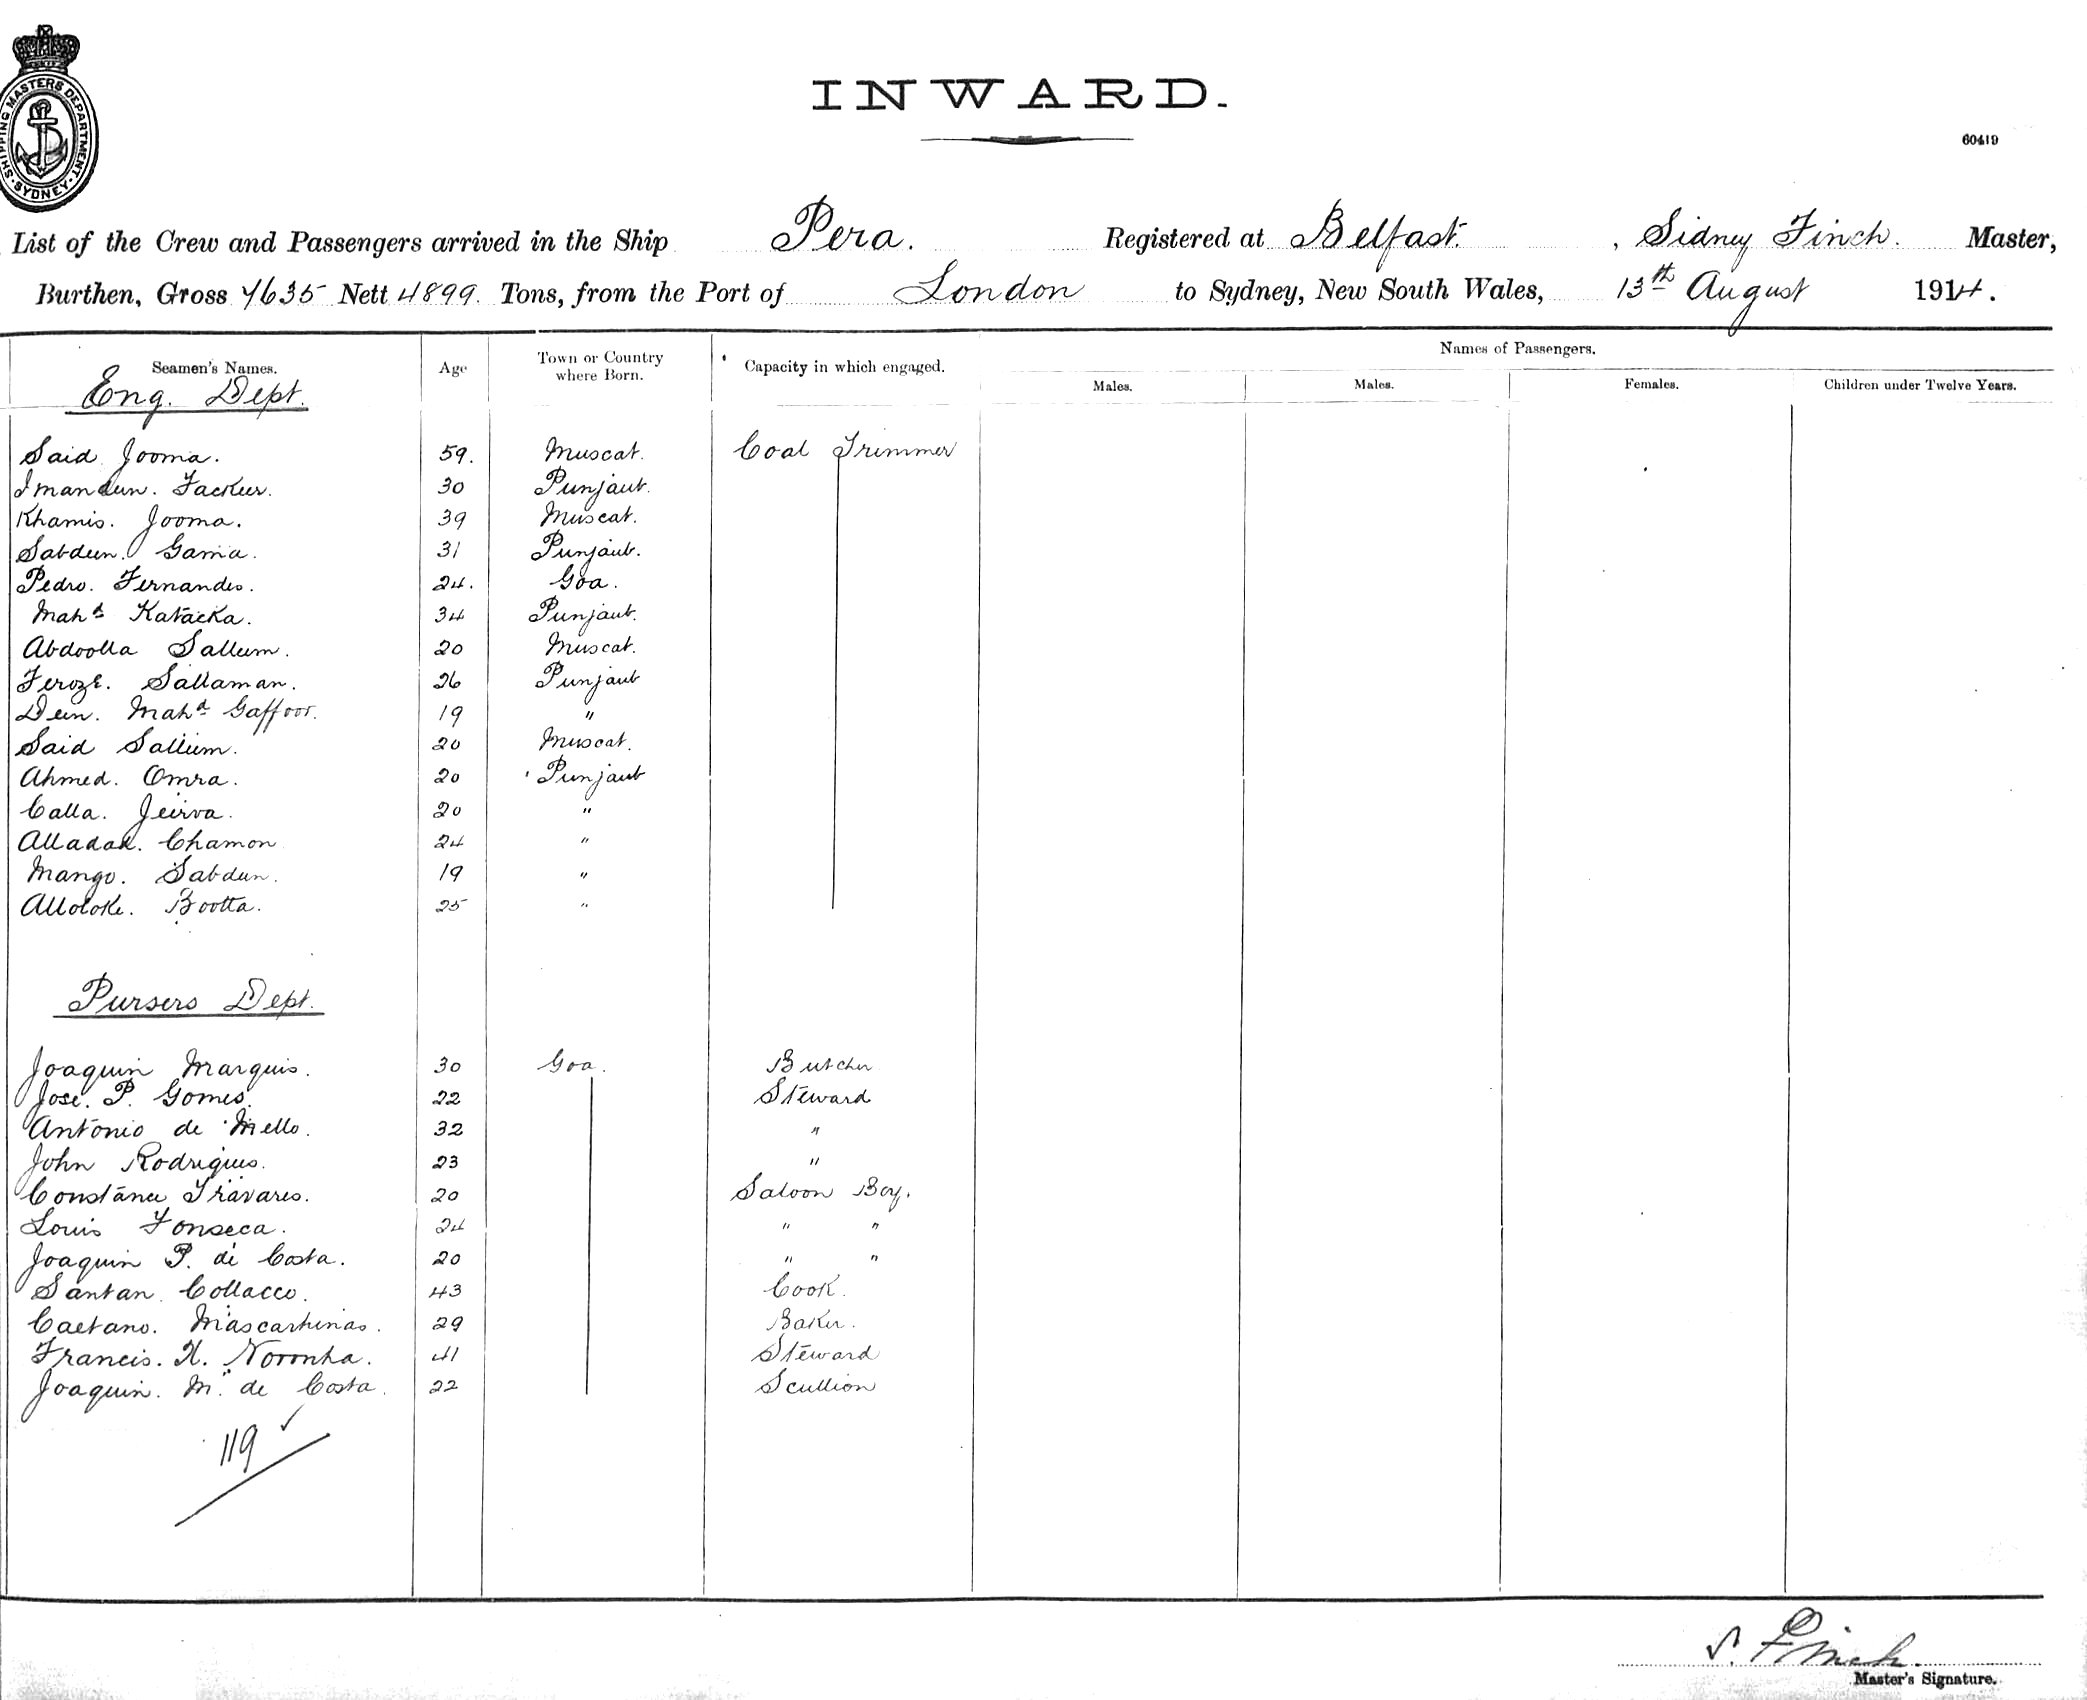 SHIPPING MASTERS DEPARTMENT. SYDNEY.
INWARD.
60419
List of the Crew and Passengers arrived in the Ship Pera. Registered at Belfast. , Sidney Finch. Master,
Burthen, Gross 7635 Nett 4899. Tons, from the Port of London to Sydney, New South Wales, 13th August 1914.
Seamen's Names. Age Town or Country where Born. Capacity in which engaged. Names of Passengers.
Males. Males. Females. Children under Twelve Years.
Eng. Dept.
Said Jooma. 59. Muscat. Coal Trimmer
Imandeen. Fackeer. 30 Punjaub.
Khamis. Jooma. 39 Muscat.
Sabdeen. Gama. 31 Punjaub.
Pedro. Fernandes. 24. Goa.
Mahd Katacka. 34 Punjaub.
Abdoolla Salleem. 20 Muscat.
Feroze. Sallaman. 26 Punjaub
Deen. Mahd Gaffoor. 19 "
Said Salleem. 20 Muscat.
Ahmed. Omra. 20 Punjaub
Calla. Jeirva. 20 "
Alladad. Chamon 24 "
Mango. Sabdeen. 19 "
Alloloke. Bootta. 25 "
Pursers Dept.
Joaquin Marquis. 30 Goa. Butcher
Jose. P. Gomes. 22 Steward
Antonio de Mello. 32 "
John Rodrigues. 23 "
Constance Travares. 20 Saloon Boy.
Louis Fonseca. 24 " "
Joaquin P. de Costa. 20 " "
Santan Collacco. 43 Cook.
Caetano. Mascarhinas. 29 Baker.
Francis. X. Noronha. 41 Steward
Joaquin. M. de Costa. 22 Scullion
119
S. Finch.
Master's Signature.